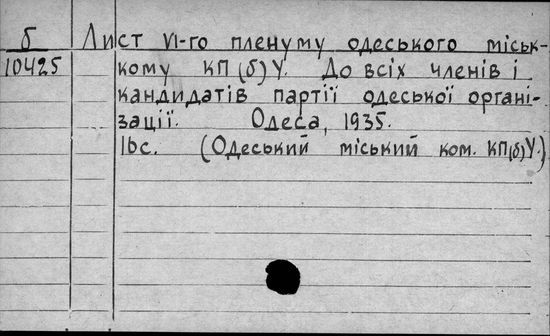 б Лист VI-го пленуму одеського міськ-
10425 кому КП(б)У. До всіх членів і
кандидатів партії одеської органі-
зації. Одеса, 1935.
16с. (Одеський міський ком. КП(б)У.)